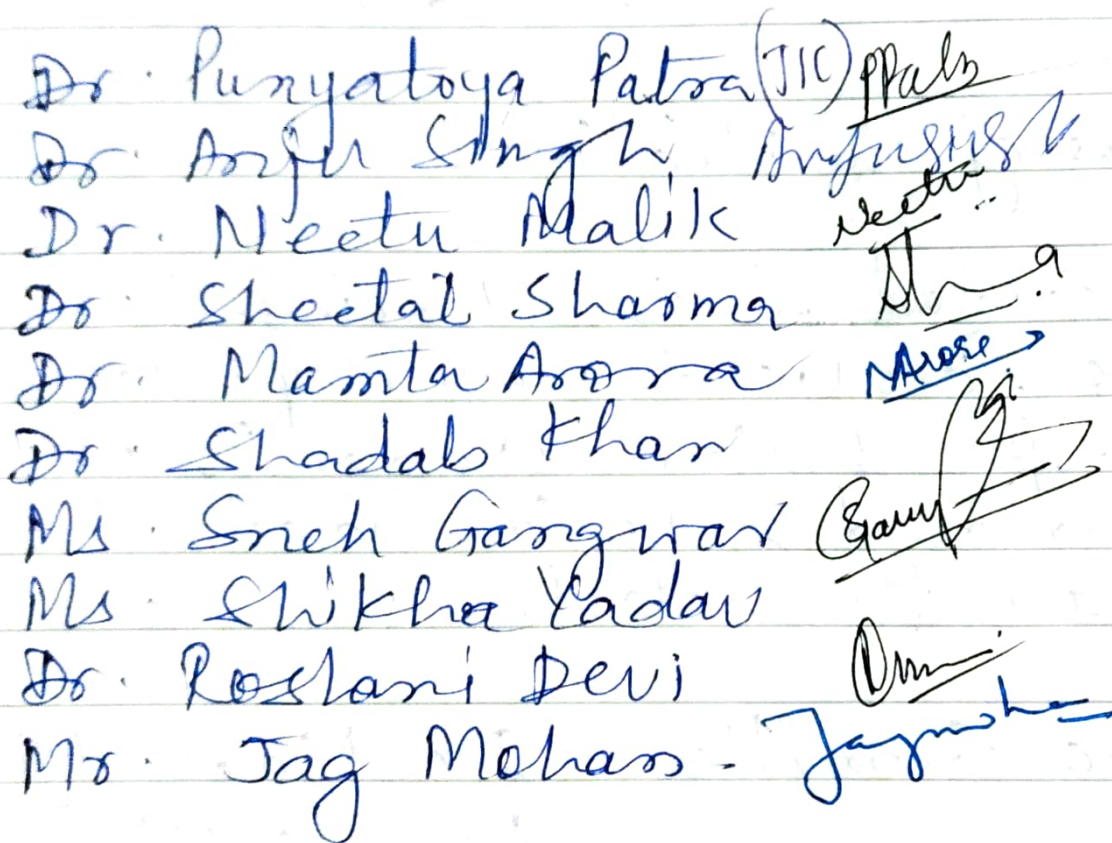 Dr. Punyatoya Patra (TIC) PPatra
Dr. Anju Singh Anjusingh
Dr. Neetu Malik Neetu
Dr Sheetal Sharma
Dr. Mamta Arora MArora
Dr. Shadab Khan
Ms. Sneh Gangwar
Ms. Shikha Yadav
Dr. Roshani Devi
Mr. Jag Mohan. Jagmohan